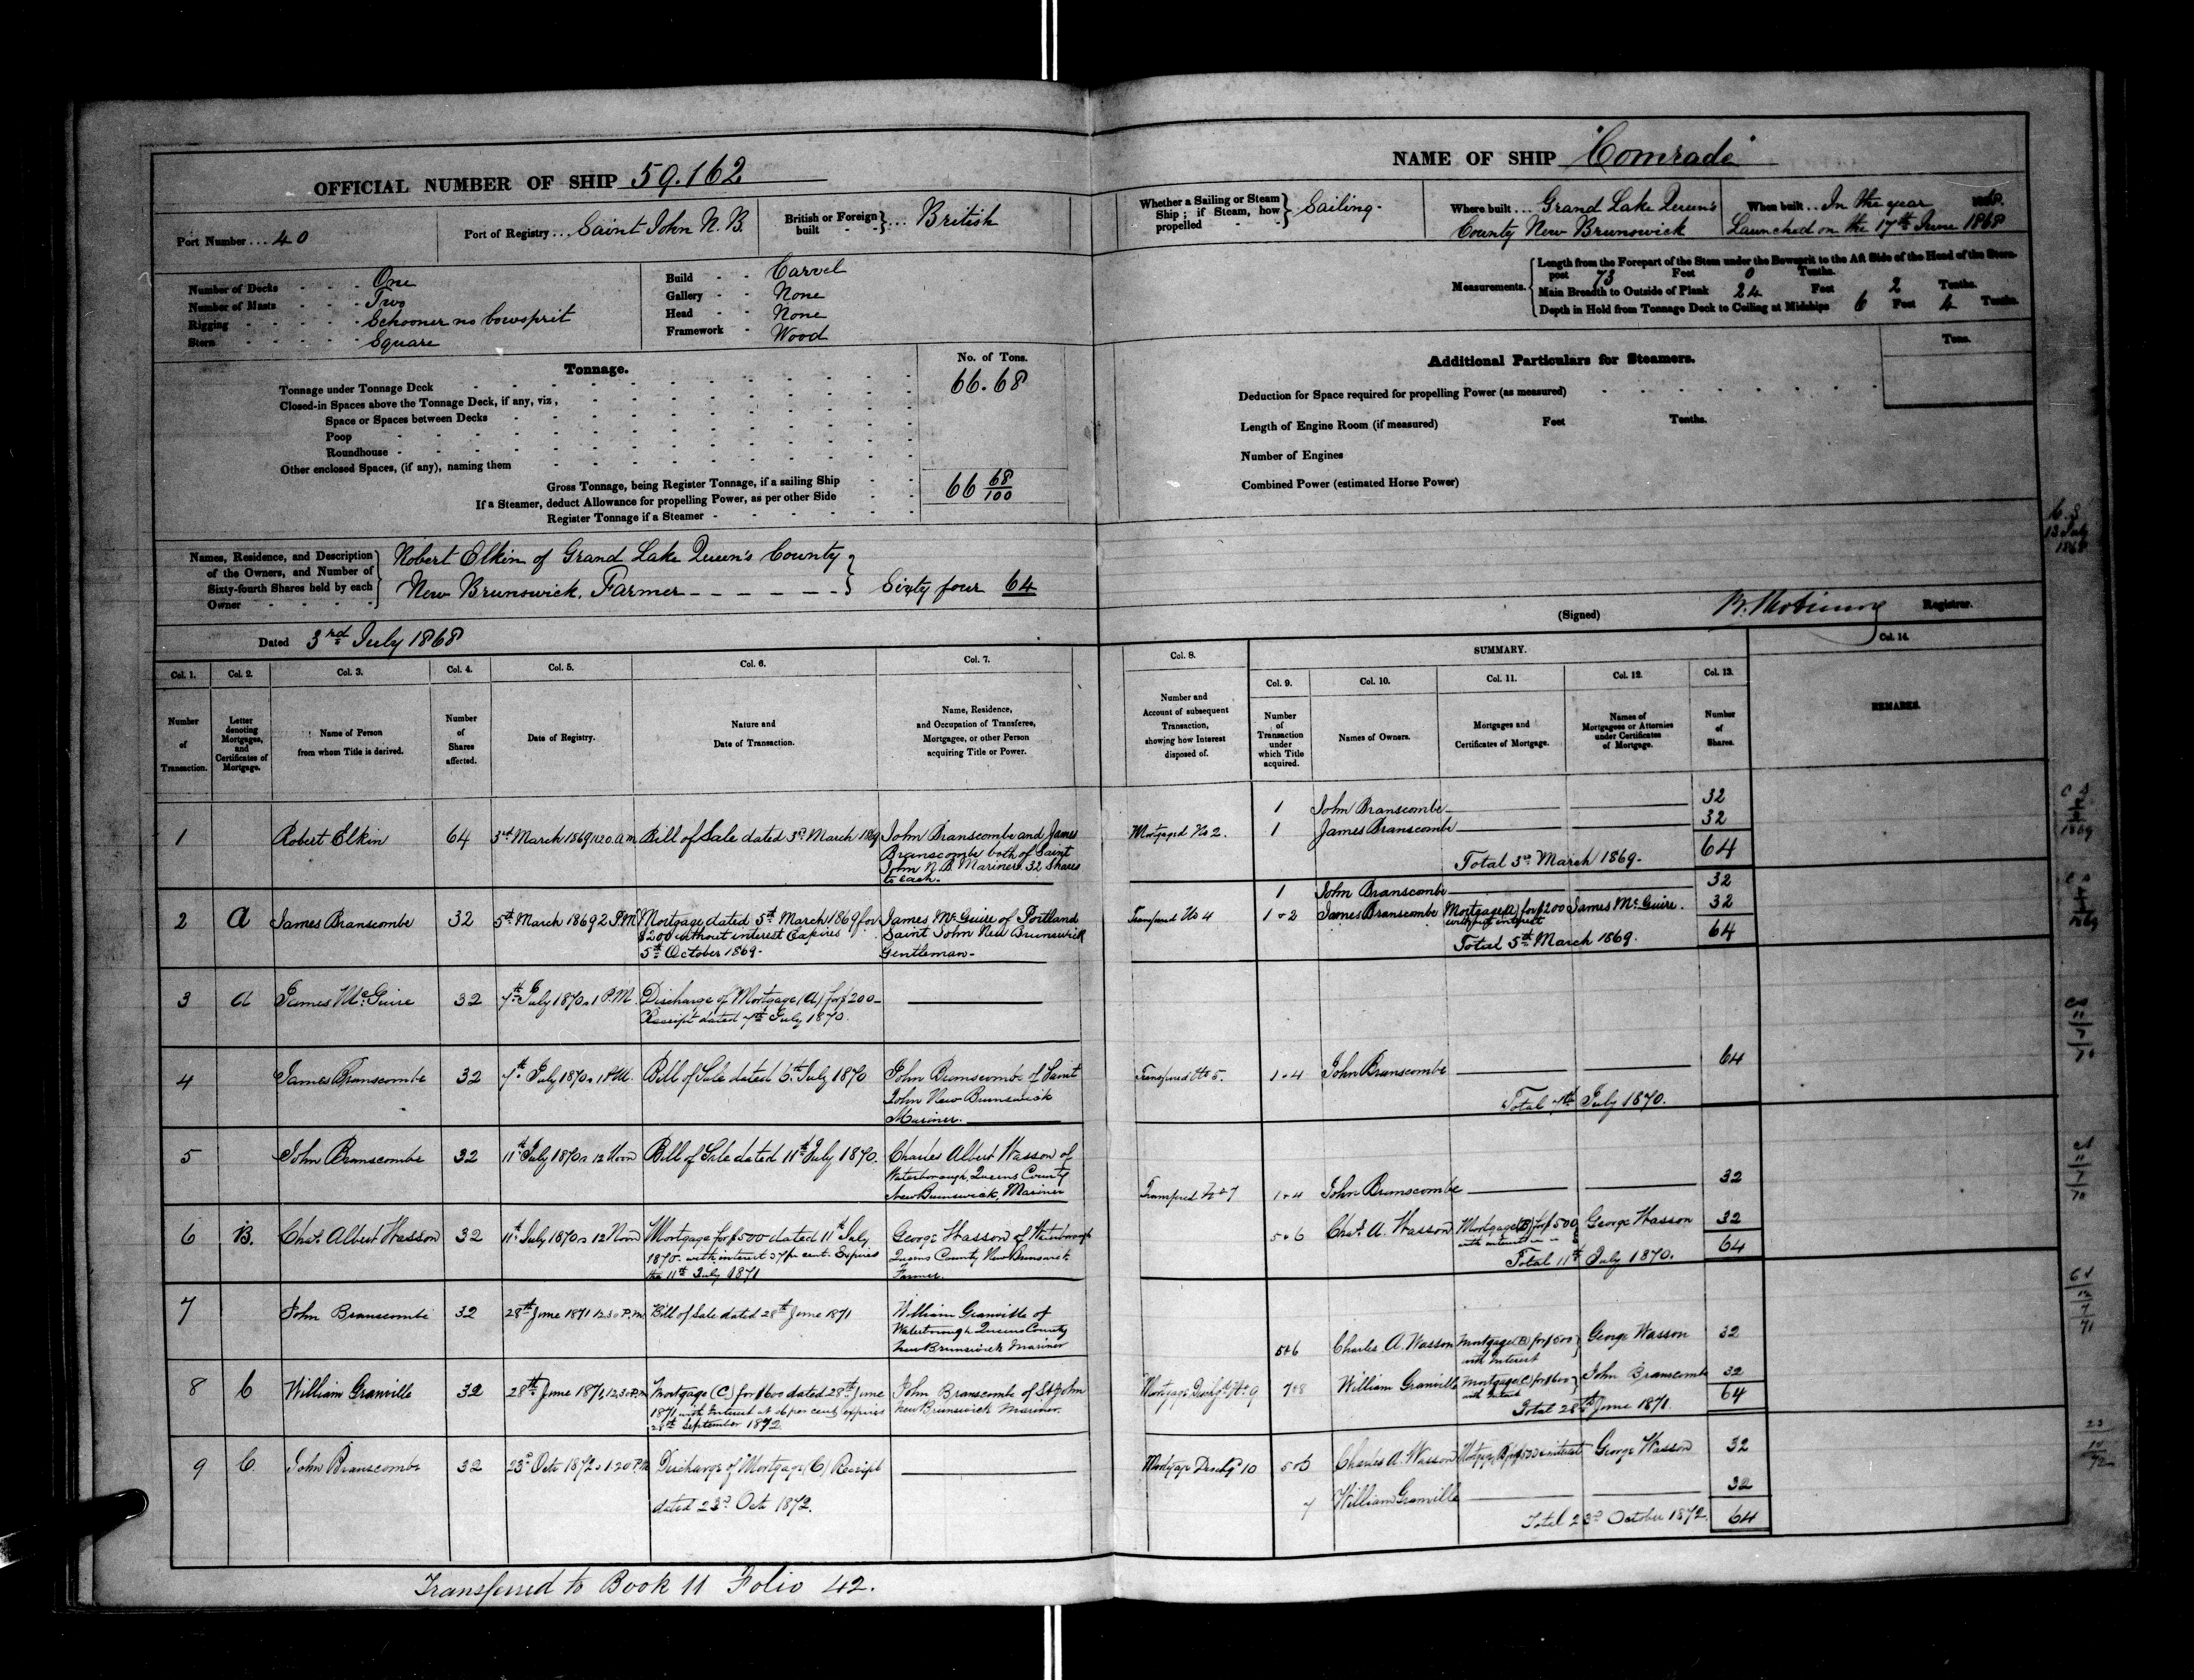 OFFICIAL NUMBER OF SHIP 59.162
Port Number ... 40
Port of Registry ... Saint John N.B.
British or Foreign built - - } ... British
Number of Decks - - - One
Number of Masts - - - Two
Rigging - - - - - Schooner no bowsprit
Stern - - - - - Square
Build - - Carvel
Gallery - - None
Head - - None
Framework - Wood
Tonnage.
No. of Tons.
Tonnage under Tonnage Deck 66.68
Closed-in Spaces above the Tonnage Deck, if any, viz,
Space or Spaces between Decks
Poop
Roundhouse
Other enclosed Spaces, (if any), naming them
Gross Tonnage, being Register Tonnage, if a sailing Ship 66 68/100
If a Steamer, deduct Allowance for propelling Power, as per other Side
Register Tonnage if a Steamer
Names, Residence, and Description
of the Owners, and Number of
Sixty-fourth Shares held by each
Owner
Robert Elkin of Grand Lake Queen's County
New Brunswick, Farmer } Sixty four 64
Dated 3rd July 1868
NAME OF SHIP "Comrade"
Whether a Sailing or Steam
Ship; if Steam, how
propelled } Sailing.
Where built ... Grand Lake Queen's
County New Brunswick
When built ... In the year 1868.
Launched on the 17th June 1868
Measurements.
Length from the Forepart of the Stem under the Bowsprit to the Aft Side of the Head of the Stern-
post 73 Feet 0 Tenths.
Main Breadth to Outside of Plank 24 Feet 2 Tenths.
Depth in Hold from Tonnage Deck to Ceiling at Midships 6 Feet 4 Tenths.
Additional Particulars for Steamers.
Tons.
Deduction for Space required for propelling Power (as measured)
Length of Engine Room (if measured) Feet Tenths.
Number of Engines
Combined Power (estimated Horse Power)
13 July
1868
(Signed) Registrar.
Col. 1. Col. 2. Col. 3. Col. 4. Col. 5. Col. 6. Col. 7.
Number of Transaction.
Letter denoting Mortgages, and Certificates of Mortgage.
Name of Person from whom Title is derived.
Number of Shares affected.
Date of Registry.
Nature and Date of Transaction.
Name, Residence, and Occupation of Transferee, Mortgagee, or other Person acquiring Title or Power.
Col. 8. SUMMARY. Col. 14.
Col. 9. Col. 10. Col. 11. Col. 12. Col. 13.
Number and Account of subsequent Transaction, showing how Interest disposed of.
Number of Transaction under which Title acquired.
Names of Owners.
Mortgages and Certificates of Mortgage.
Names of Mortgagees or Attornies under Certificates of Mortgage.
Number of Shares.
REMARKS.
1 Robert Elkin 64 3rd March 1869 11.20 a.m. Bill of Sale dated 3rd March 1869 John Branscombe and James
Branscombe both of Saint
John N.B. Mariners. 32 Shares
to each.
2 A James Branscombe 32 5th March 1869 2 P.M. Mortgage dated 5th March 1869 for
$200 without interest Expires
5th October 1869.
James McGuire of Portland
Saint John New Brunswick
Gentleman
3 A James McGuire 32 7th July 1870 1 P.M. Discharge of Mortgage (A) for $200
Receipt dated 7th July 1870.
4 James Branscombe 32 7th July 1870 1 P.M. Bill of Sale dated 6th July 1870
John Branscombe of Saint
John New Brunswick
Mariner.
5 John Branscombe 32 11th July 1870 12 Noon Bill of Sale dated 11th July 1870.
Charles Albert Wasson of
Waterborough, Queens County
New Brunswick, Mariner
6 B. Chas. Albert Wasson 32 11th July 1870 12 Noon Mortgage for $500 dated 11th July
1870 with interest per cent. Expires
the 11th July 1871
George Wasson of Waterborough
Queens County New Brunswick
Farmer.
7 John Branscombe 32 28th June 1871 12.30 P.M. Bill of Sale dated 28th June 1871
William Granville of
Waterborough Queens County
New Brunswick Mariner
8 C William Granville 32 28th June 1871 12.30 P.M. Mortgage (C) for $600 dated 28th June
1871, with Interest at 6 per cent, expires
28th September 1872
John Branscombe of St. John
New Brunswick Mariner.
9 C John Branscombe 32 23d Octo 1872 1.20 P.M. Discharge of Mortgage (C) Receipt
dated 23d Oct 1872.
1 John Branscombe 32
Mortgaged No 2. 1 James Branscombe 32
Total 3rd March 1869. 64
1 John Branscombe 32
Transferred No 4 1 & 2 James Branscombe Mortgage (A) for $200 James McGuire. 32
without interest
Total 5th March 1869. 64
Transferred No 5. 1 & 4 John Branscombe 64
Total 7th July 1870.
Transferred No 7 1 & 4 John Branscombe 32
5 & 6 Chas. A. Wasson Mortgage (B) for $500 George Wasson 32
with interest
Total 11th July 1870. 64
5 & 6 Charles A. Wasson Mortgage (B) for $500 George Wasson 32
with Interest
Mortgage Dischgd No 9 7 & 8 William Granville Mortgage (C) for $600 John Branscombe 32
Total 28th June 1871. 64
Mortgage Dischgd 10 5 & 6 Charles A. Wasson Mortgage (B) for $500 & interest George Wasson 32
7 William Granville 32
Total 23d October 1872. 64
Transferred to Book 11 Folio 42.